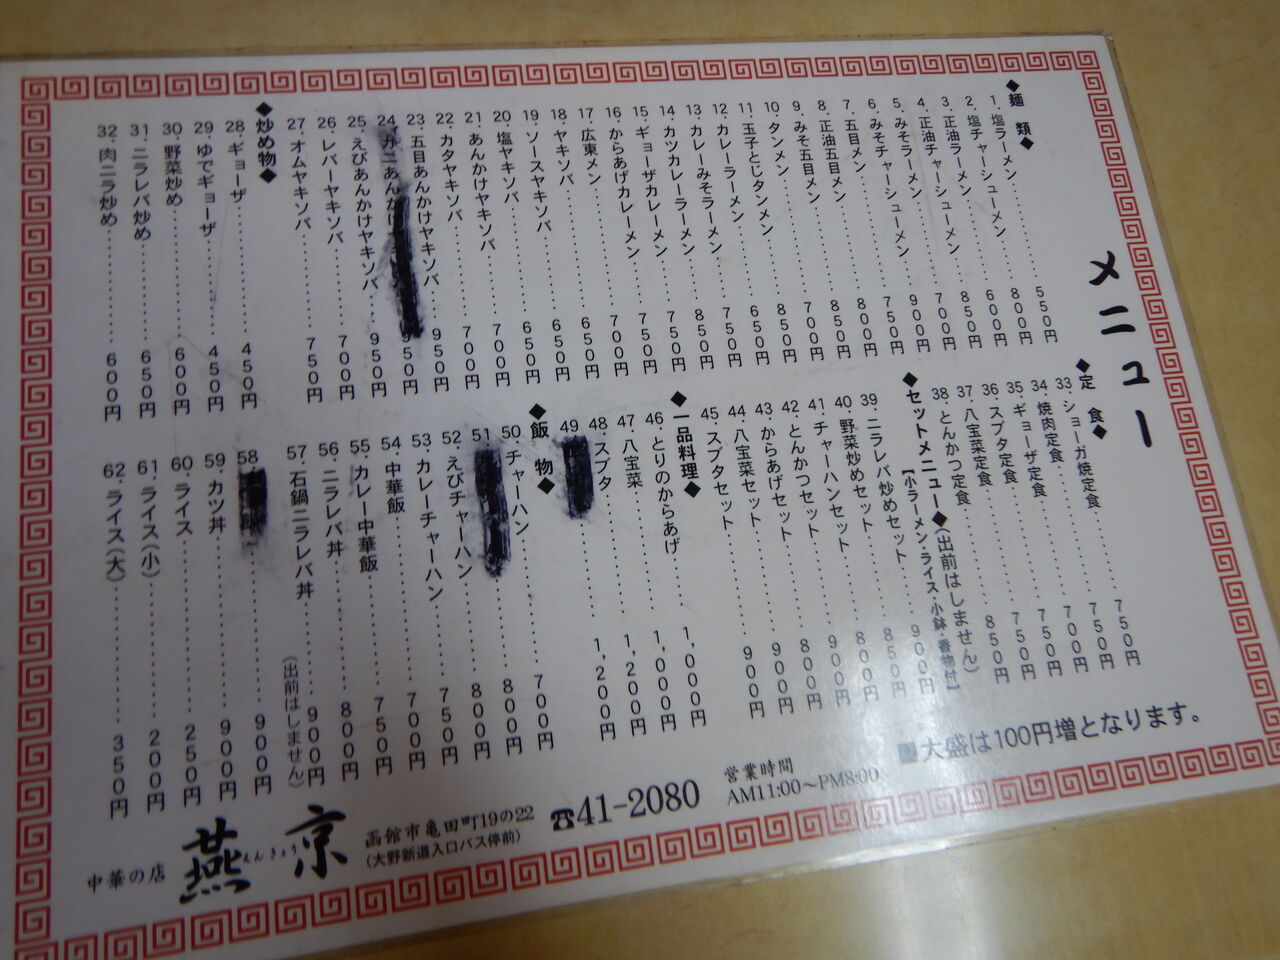 メニュー
◆麺 類◆
1. 塩ラーメン 550円
2. 塩チャーシューメン 800円
3. 正油ラーメン 600円
4. 正油チャーシューメン 850円
5. みそラーメン 700円
6. みそチャーシューメン 900円
7. 五目メン 750円
8. 正油五目メン 800円
9. みそ五目メン 850円
10. タンメン 700円
11. 玉子とじタンメン 850円
12. カレーラーメン 650円
13. カレーみそラーメン 750円
14. カツカレーラーメン 850円
15. ギョーザカレーメン 750円
16. からあげカレーメン 750円
17. 広東メン 700円
18. ヤキソバ 650円
19. ソースヤキソバ 650円
20. 塩ヤキソバ 650円
21. あんかけヤキソバ 700円
22. カタヤキソバ 700円
23. 五目あんかけヤキソバ 950円
24. カニあんかけ 950円
25. えびあんかけヤキソバ 950円
26. レバーヤキソバ 700円
27. オムヤキソバ 750円
◆炒め物◆
28. ギョーザ 450円
29. ゆでギョーザ 450円
30. 野菜炒め 600円
31. ニラレバ炒め 650円
32. 肉ニラ炒め 600円
◆定 食◆
33. ショーガ焼定食 750円
34. 焼肉定食 750円
35. ギョーザ定食 700円
36. スブタ定食 750円
37. 八宝菜定食 750円
38. とんかつ定食 850円
◆セットメニュー◆(出前はしません)
【小ラーメン・ライス・小鉢・香物付】
39. ニラレバ炒めセット 900円
40. 野菜炒めセット 850円
41. チャーハンセット 800円
42. とんかつセット 900円
43. からあげセット 800円
44. 八宝菜セット 900円
45. スブタセット 900円
◆一品料理◆
46. とりのからあげ 1,000円
47. 八宝菜 1,000円
48. スブタ 1,200円
49. 1,200円
◆飯 物◆
50. チャーハン 700円
51. 800円
52. えびチャーハン 800円
53. カレーチャーハン 750円
54. 中華飯 700円
55. カレー中華飯 750円
56. ニラレバ丼 800円
57. 石鍋ニラレバ丼 900円
(出前はしません)
58. 900円
59. カツ丼 900円
60. ライス 250円
61. ライス(小) 200円
62. ライス(大) 350円
■大盛は100円増となります。
営業時間
AM11:00〜PM8:00
☎41-2080
函館市亀田町19の22
(大野新道入口バス停前)
中華の店
燕京
えんきょう